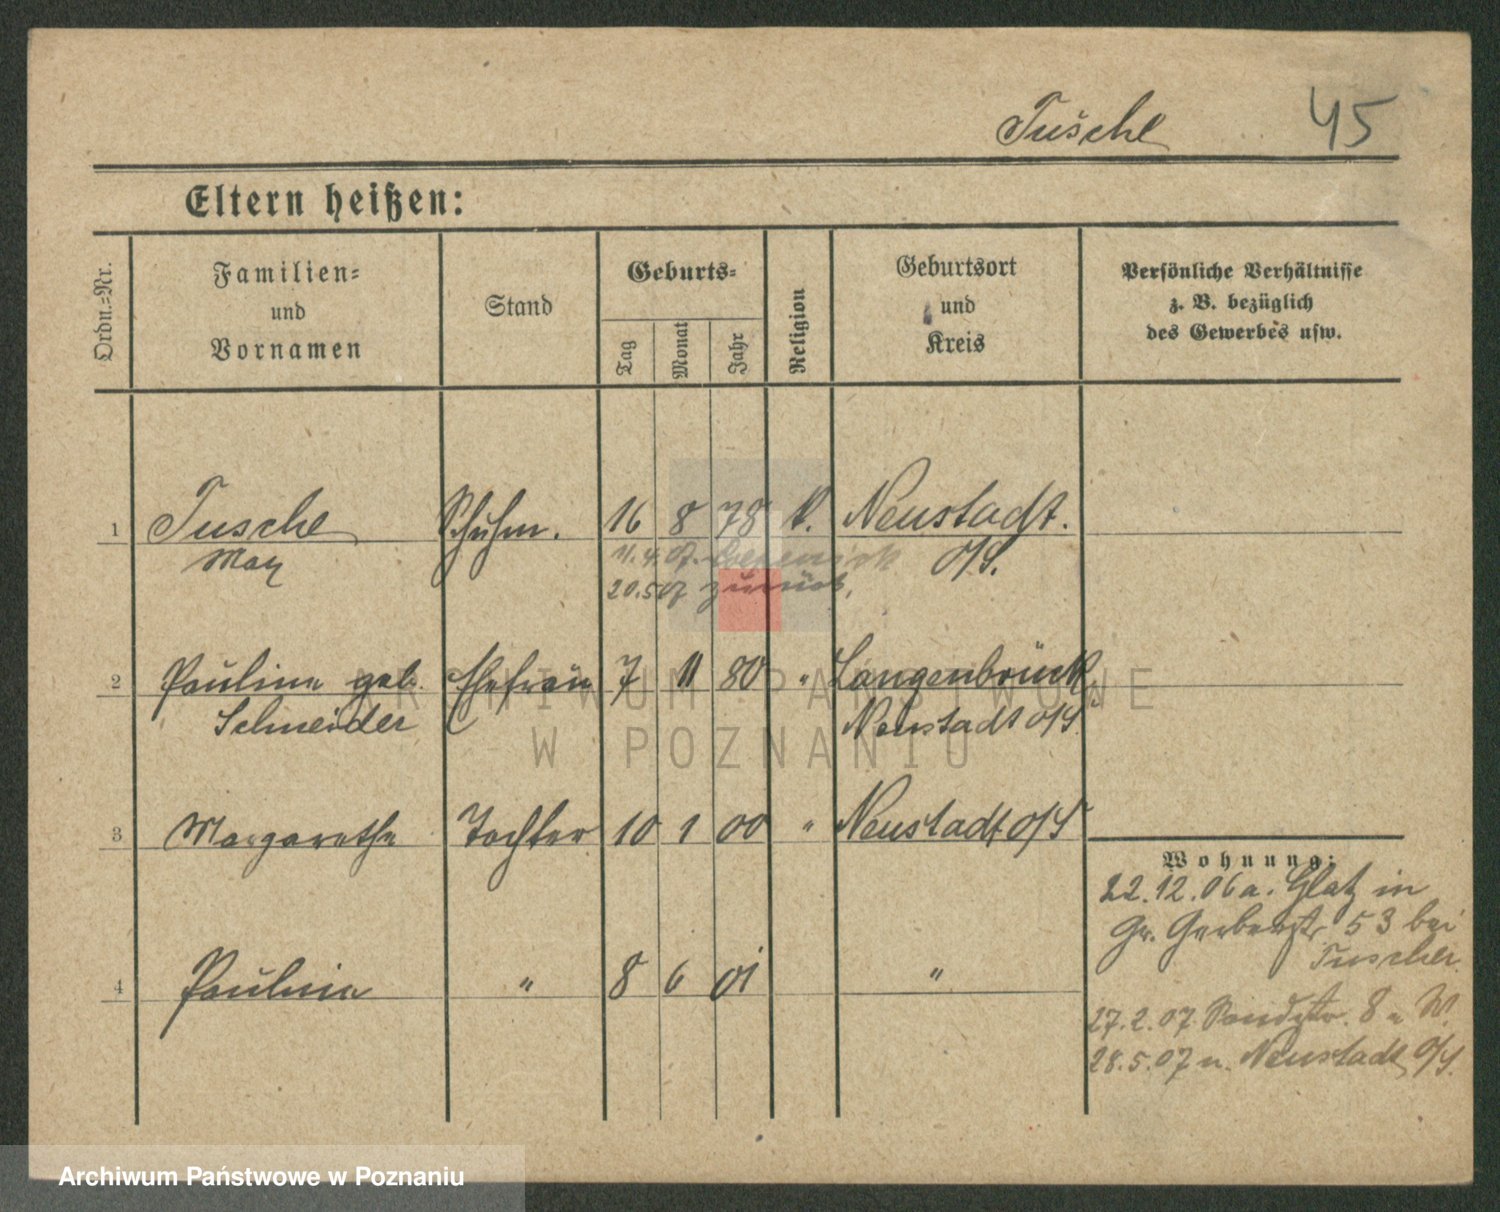 Tusche 45
Eltern heißen:
Ordn.=Nr.
Familien=
und
Vornamen
Stand
Geburts=
Tag
Monat
Jahr
Religion
Geburtsort
und
Kreis
Persönliche Verhältnisse
z. B. bezüglich
des Gewerbes usw.
1 Tusche Schuhm. 16 8 78 k. Neustadt.
Max O/S.
11.4.07.
20.5.07 zurück.
2 Pauline geb. Ehefrau 7 11 80 " Langenbrück
Schneider Neustadt O/S.
3 Margarethe Tochter 10 1 00 " Neustadt O/S
Wohnung:
22.12.06 a. Glatz in
Gr. Gerberstr. 53 bei
Tuscher.
4 Pauline " 8 6 01 "
27.2.07. 8 W.
28.5.07 n. Neustadt O/S.
ARCHIWUM PAŃSTWOWE
W POZNANIU
Archiwum Państwowe w Poznaniu